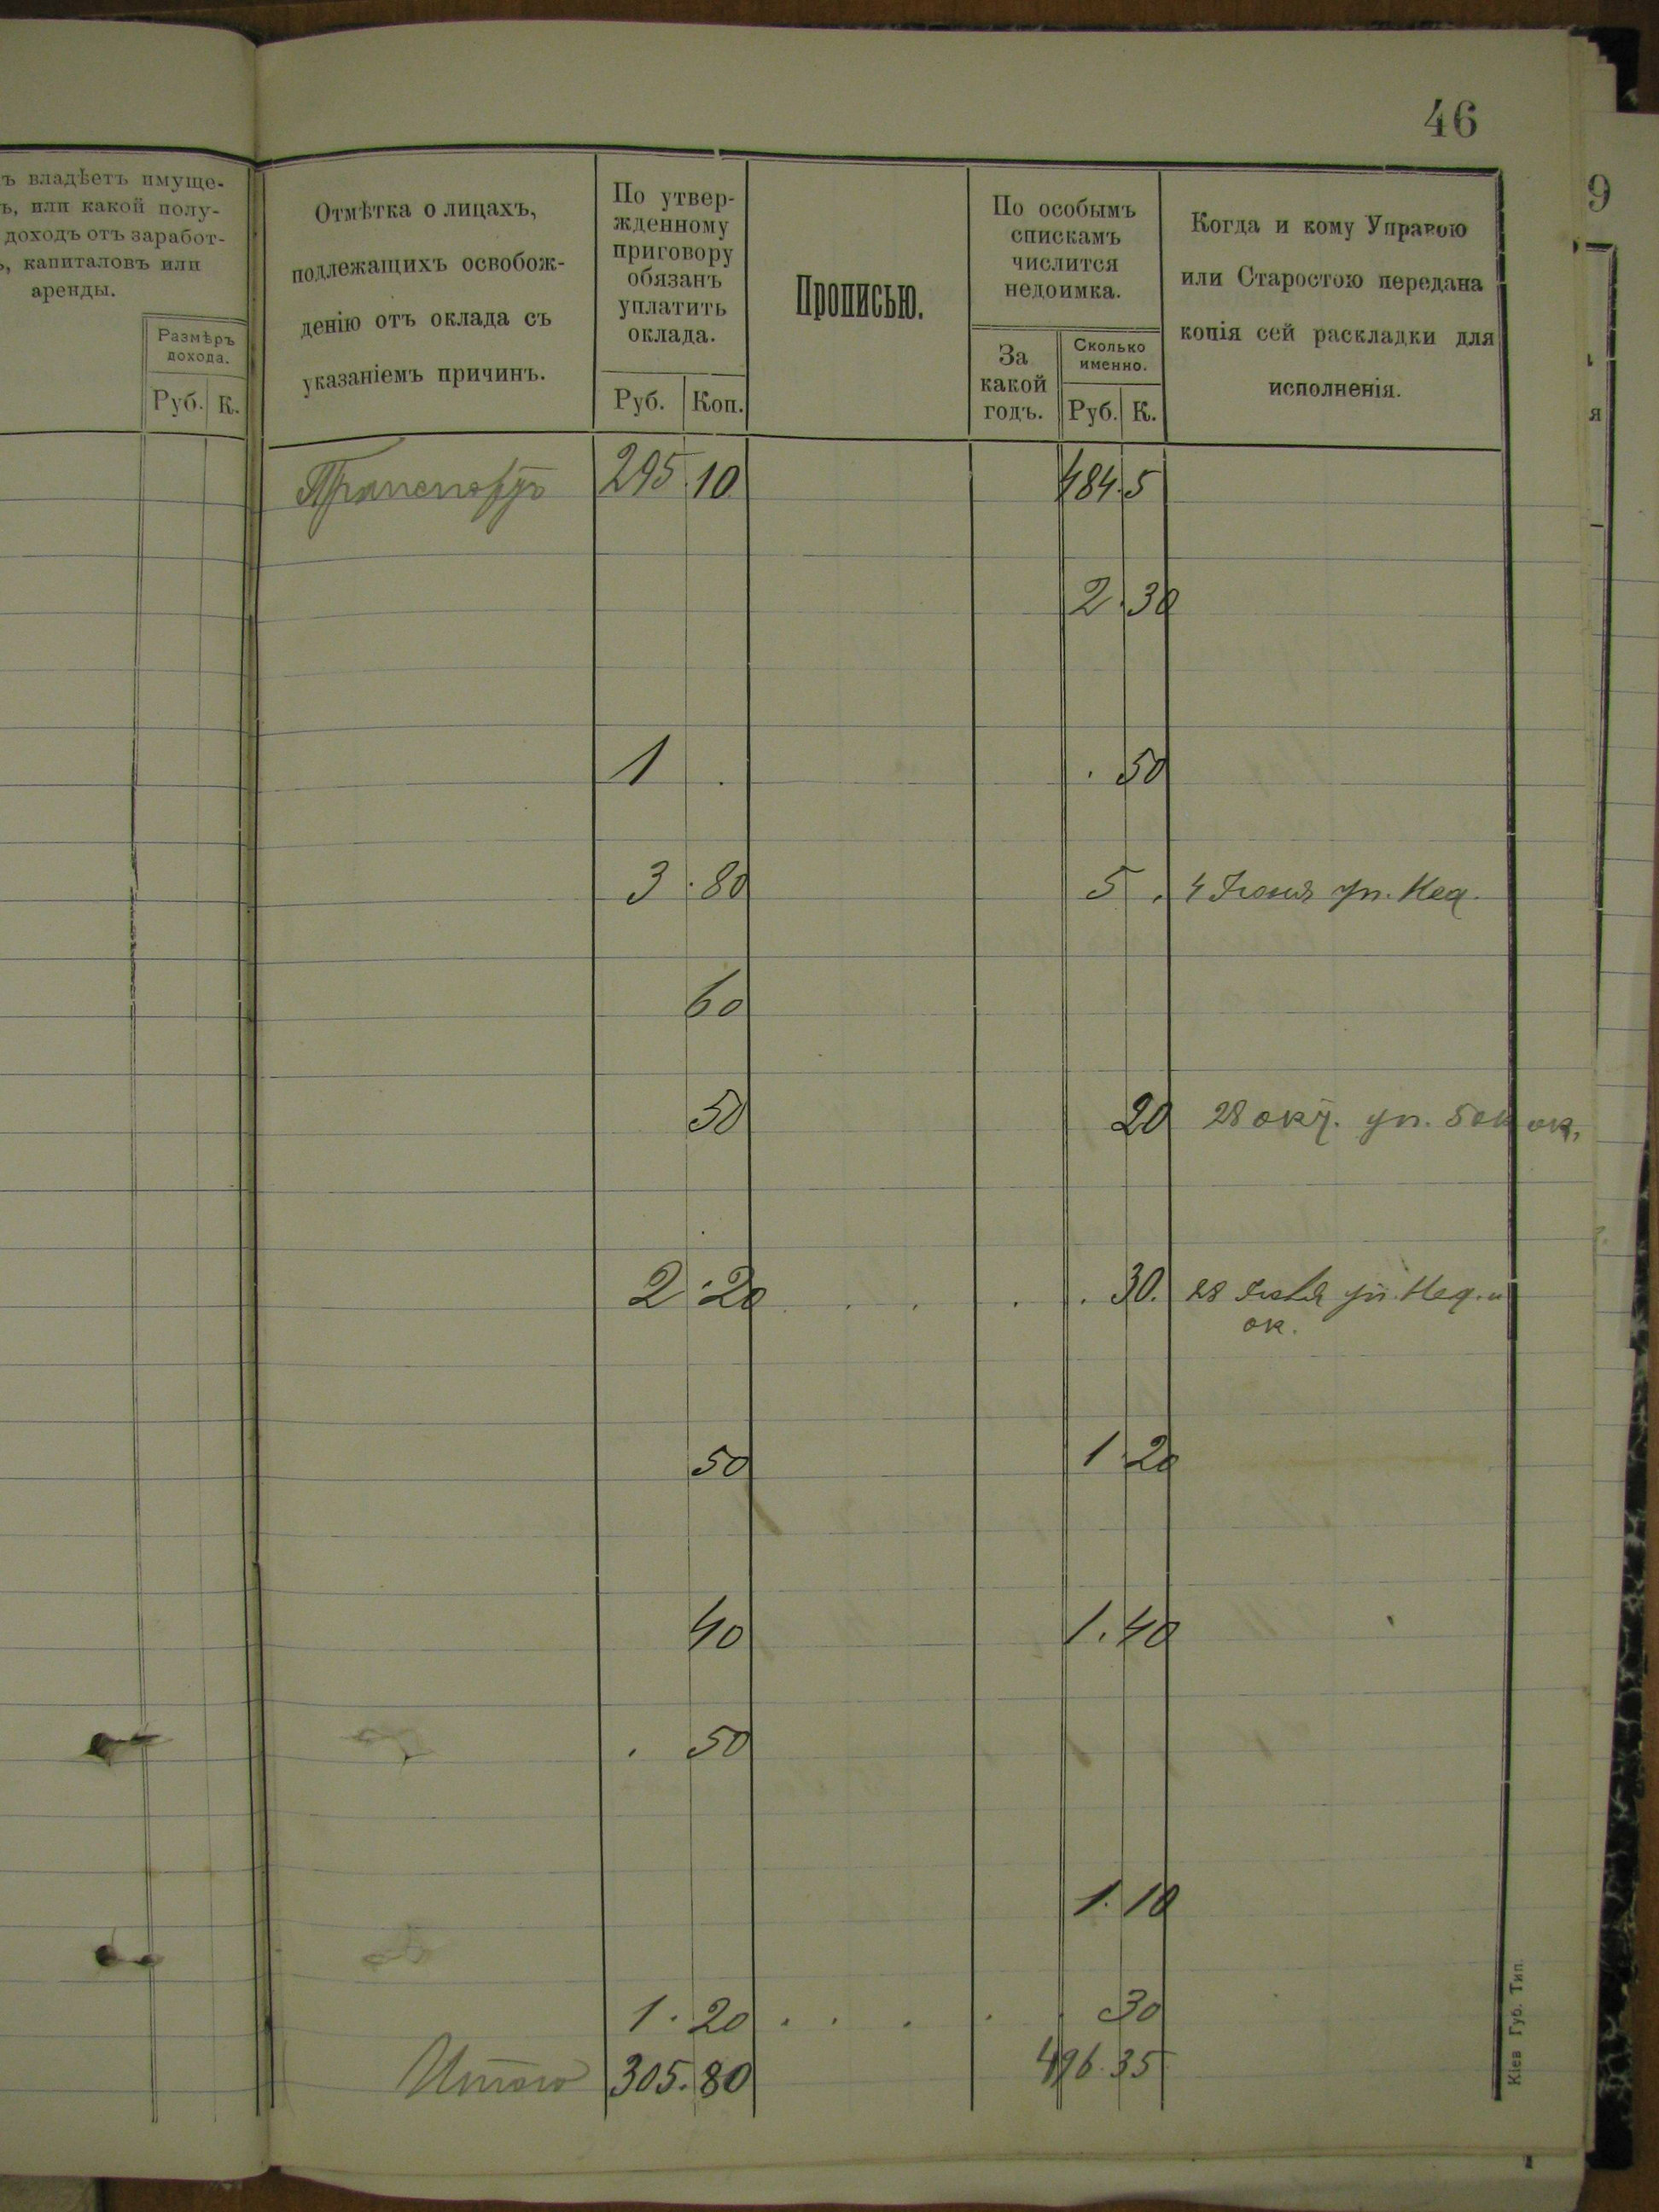 46
9
ъ владѣетъ имуще-
ь, или какой полу-
доходъ отъ заработ-
ъ, капиталовъ или
аренды.
Размѣръ
дохода.
Руб. К.
Отмѣтка о лицахъ,
подлежащихъ освобож-
денію отъ оклада съ
указаніемъ причинъ.
По утвер-
жденному
приговору
обязанъ
уплатить
оклада.
Руб. Коп.
Прописью.
По особымъ
спискамъ
числится
недоимка.
За
какой
годъ.
Сколько
именно.
Руб. К.
Когда и кому Управою
или Старостою передана
копія сей раскладки для
исполненія.
я
Транспортъ 295.10 484.5
2.30
1 . . 50
3.80 5 . 4 Іюня уп. Нед.
60
50 20 28 окт. уп. 50к ок.
2.20 . . . . 30. 28 уп. Нед. и
ок.
50 1.20
40 1.40
. 50
1.10
1.20 . . . . . 30
Итого 305.80 496.35
Кіев Губ. Тип.